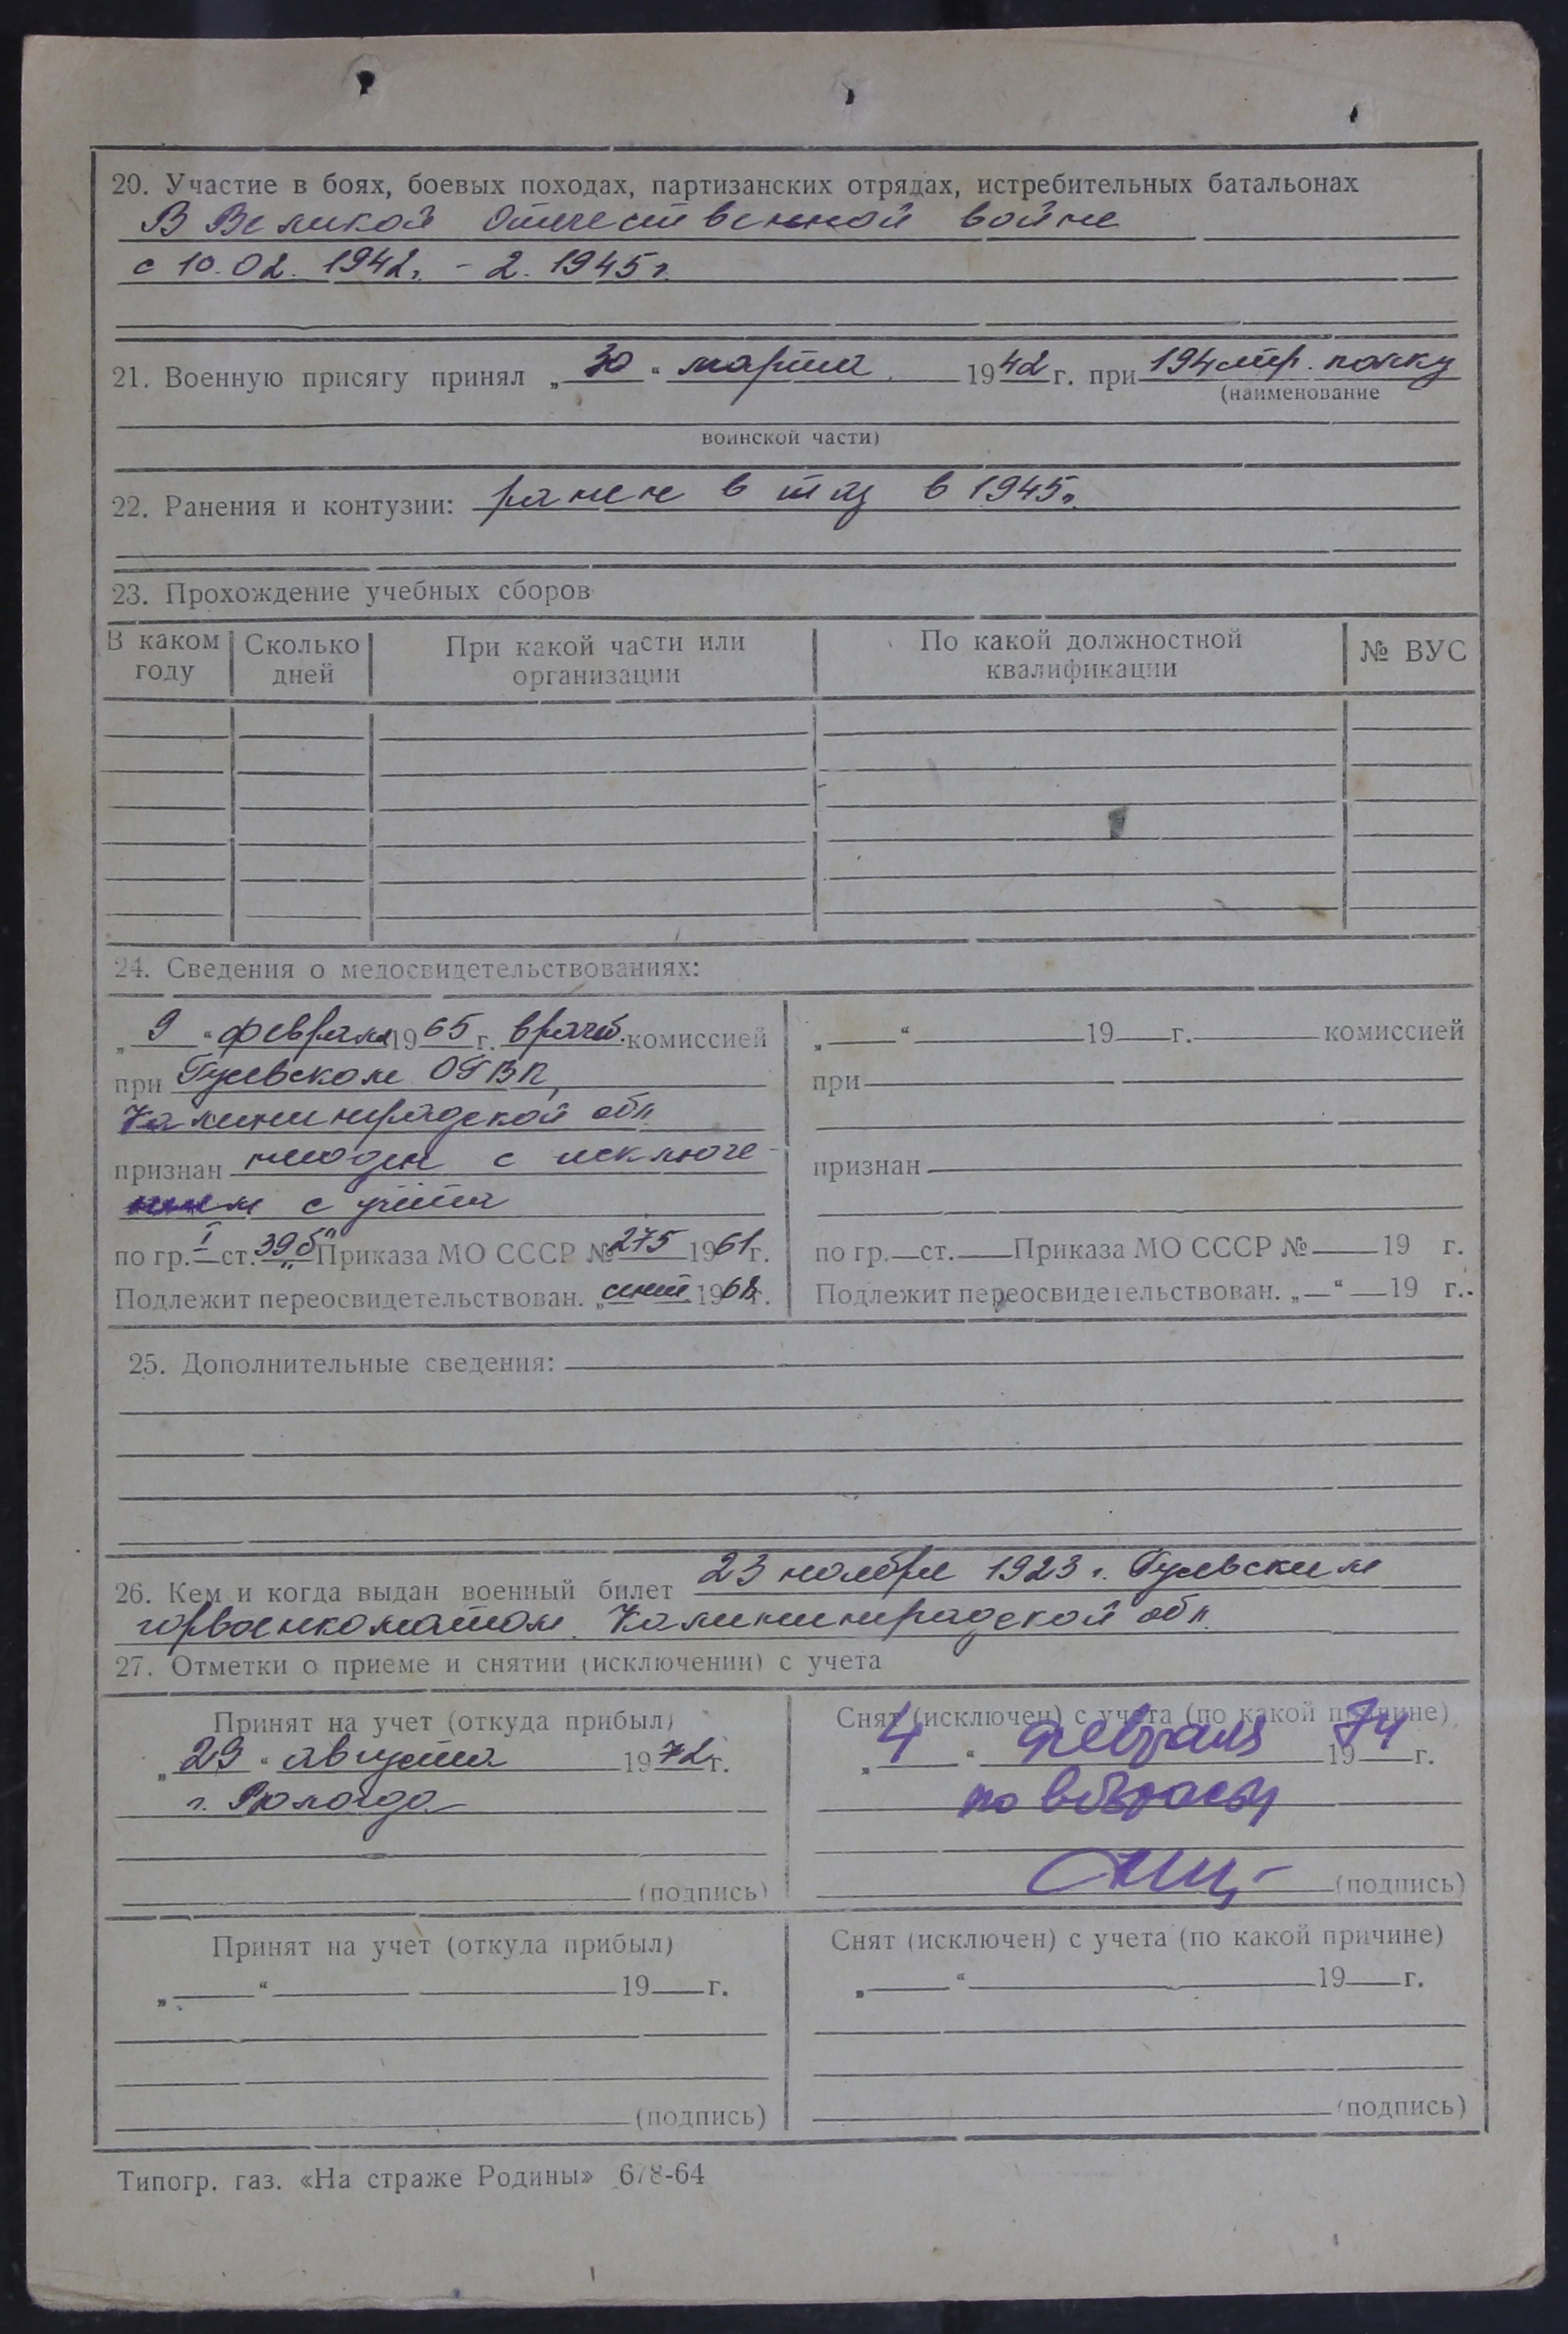 20. Участие в боях, боевых походах, партизанских отрядах, истребительных батальонах
В Великой Отечественной войне
с 10.02. 1942г. - 2. 1945г.
21. Военную присягу принял „30“ марта 1942 г. при 194 стр. полку
(наименование
воинской части)
22. Ранения и контузии: ранен в таз в 1945г.
23. Прохождение учебных сборов
В каком году Сколько дней При какой части или организации По какой должностной квалификации № ВУС
24. Сведения о медосвидетельствованиях:
„9“ февраля 1965 г. врачеб. комиссией
при Гусевском ОГВК,
Калининградской обл.
признан негоден с исключе-
нием с учёта
по гр. I ст. 39 „б“ Приказа МО СССР № 275 1961г.
Подлежит переосвидетельствован. „ 196 г.
„ “ 19 г. комиссией
при
признан
по гр. ст. Приказа МО СССР № 19 г.
Подлежит переосвидетельствован. „ “ 19 г.
25. Дополнительные сведения:
26. Кем и когда выдан военный билет 23 ноября 1923 г. Гусевским
горвоенкоматом Калининградской обл.
27. Отметки о приеме и снятии (исключении) с учета
Принят на учет (откуда прибыл)
„29“ августа 1972г.
г.
(подпись)
Снят (исключен) с учета (по какой причине)
„4“ февраля 1974 г.
по возрасту
(подпись)
Принят на учет (откуда прибыл)
„ “ 19 г.
(подпись)
Снят (исключен) с учета (по какой причине)
„ “ 19 г.
(подпись)
Типогр. газ. «На страже Родины» 678-64